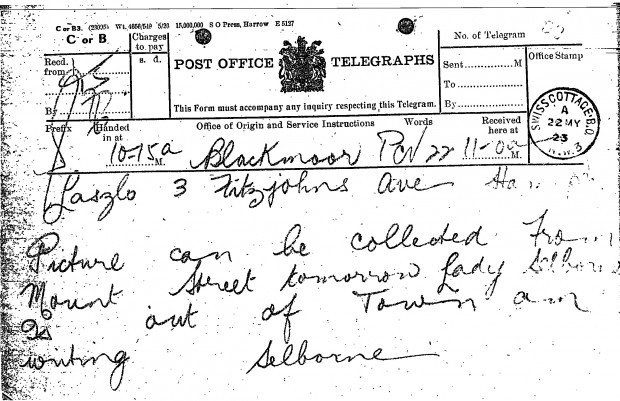 C or B3. (23095) Wt. 4866/549 5/20 15,000,000 S O Press, Harrow E 5127
C or B
Charges to pay
s. d.
POST OFFICE TELEGRAPHS
No. of Telegram
Recd. from
Sent M
Office Stamp
To
By
By
This Form must accompany any inquiry respecting this Telegram.
Prefix
Handed in at
Office of Origin and Service Instructions
Words
Received here at
SWISS COTTAGE B.O.
N.W.3
A
22 MY
23
S 10-15a M. Blackmoor 22 11-0a M.
Laszlo 3 Fitzjohns Ave
Picture can be collected from
Mount Street tomorrow Lady Selborne
is out of Town am
writing Selborne